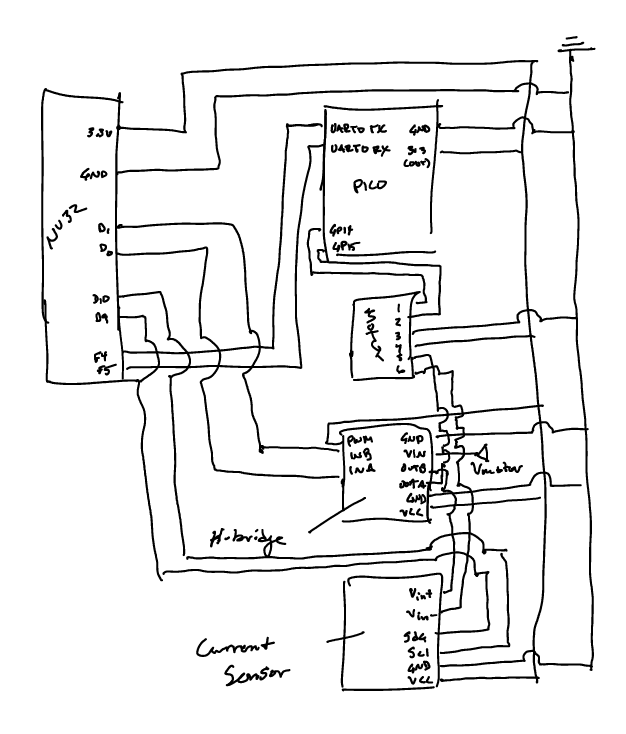 3.3V
GND
NU32
D1
D0
D10
D9
F4
F5
UART0 TX
UART0 RX
GND
3v3
(OUT)
PICO
GP14
GP15
1
2
3
4
5
6
PWM
INB
INA
GND
VIN
OUTB
OUTA
GND
VCC
Vmotor
H-bridge
Vin+
Vin-
Sda
Scl
GND
VCC
Current
Sensor